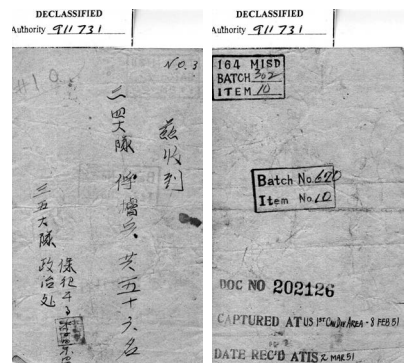 DECLASSIFIED
Authority 911731
NO. 3
#10
茲收到
二四大隊俘擄兵共五十六名
三五大隊政治处
DECLASSIFIED
Authority 911731
164 MISD
BATCH 302
ITEM 10
Batch No. 620
Item No. 10
DOC NO 202126
CAPTURED AT US 1ST CAV DIV AREA - 8 FEB 51
DATE REC'D ATIS 2 MAR 51